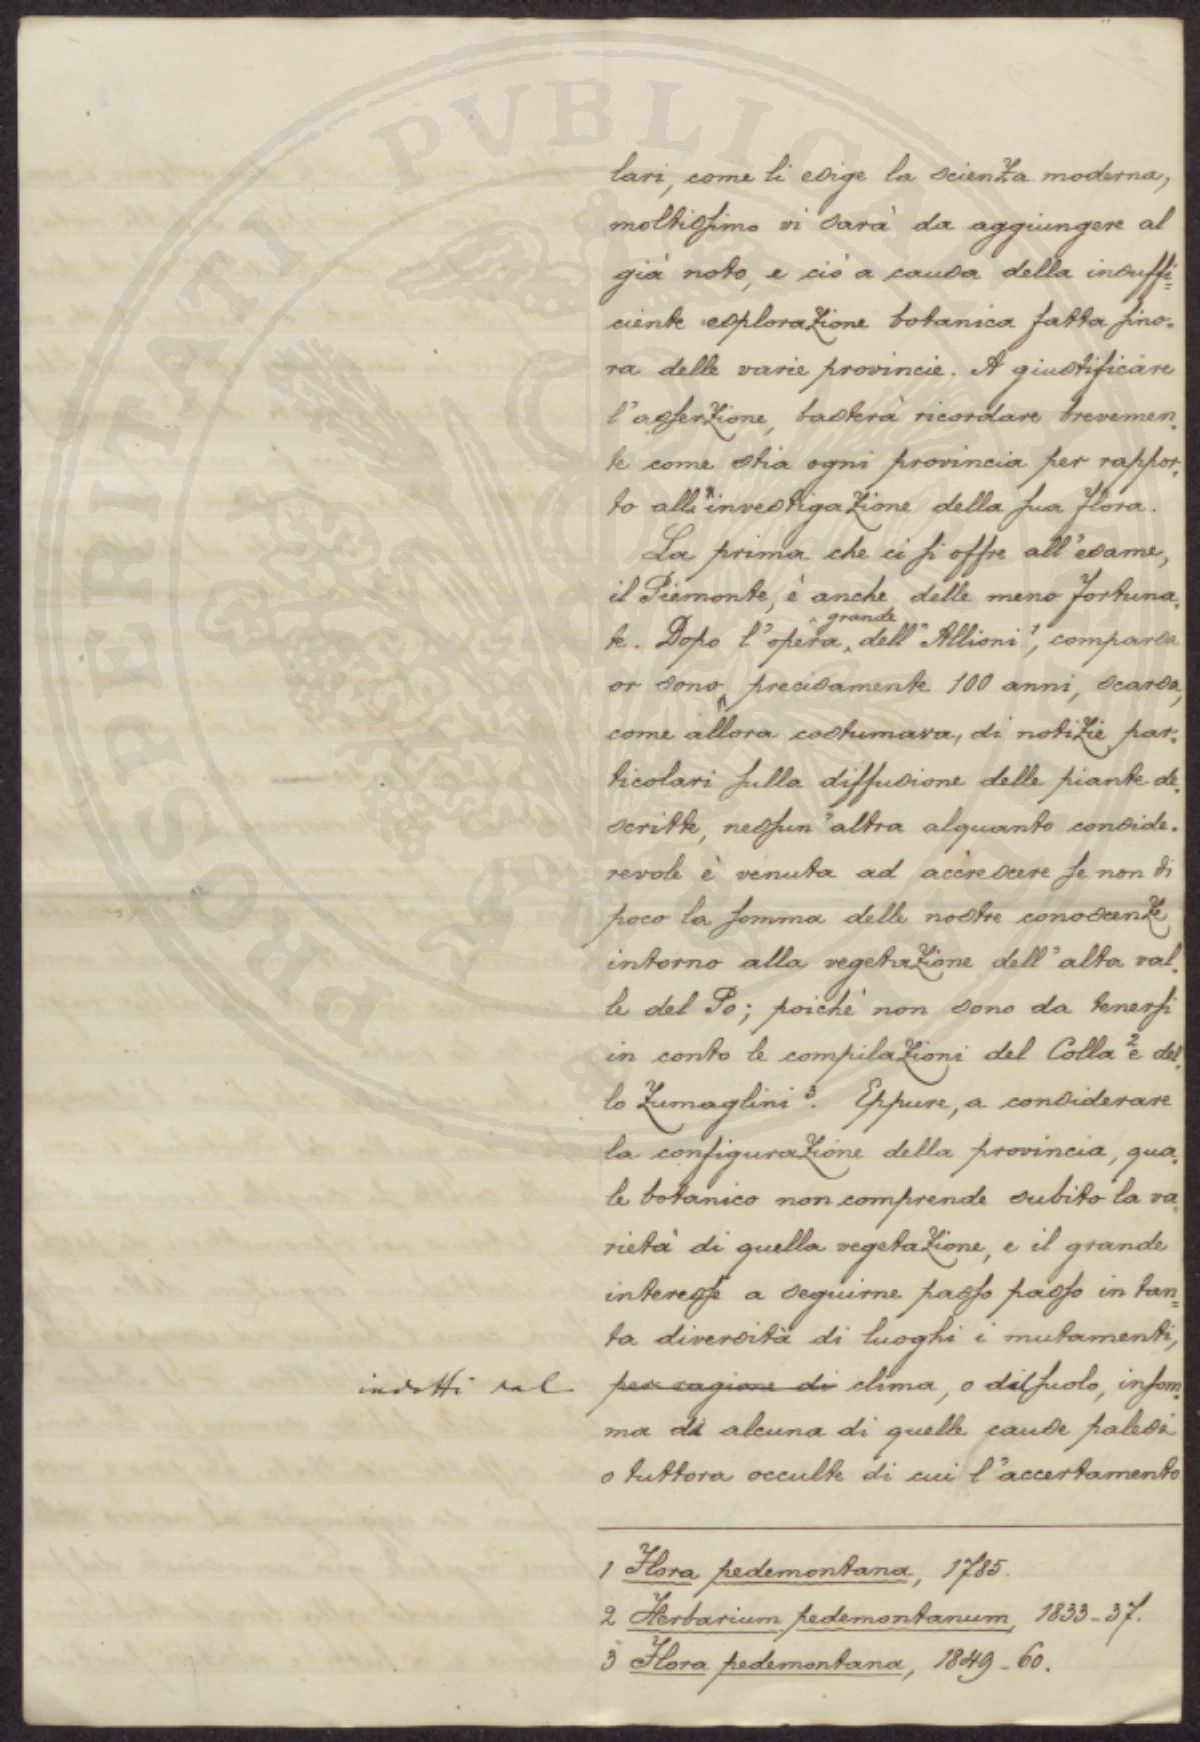 PROSPERITATI PVBLICAE
lari, come li esige la scienza moderna,
moltissimo vi sarà da aggiungere al
già noto, e ciò a causa della insuffi=
ciente esplorazione botanica fatta fino-
ra delle varie provincie. A giustificare
l'asserzione, basterà ricordare brevemen-
te come stia ogni provincia per rappor-
to all'investigazione della sua flora.
La prima che ci si offre all'esame,
il Piemonte, è anche delle meno fortuna-
grande
te. Dopo l'opera dell'Allioni 1, comparsa
or sono precisamente 100 anni, scarsa,
come allora costumava, di notizie par-
ticolari sulla diffusione delle piante de-
scritte, nessun'altra alquanto conside-
revole è venuta ad accrescere se non di
poco la somma delle nostre conoscenze
intorno alla vegetazione dell'alta val-
le del Po; poichè non sono da tenersi
in conto le compilazioni del Colla 2 e del-
lo Zumaglini 3. Eppure, a considerare
la configurazione della provincia, qua-
le botanico non comprende subito la va-
rietà di quella vegetazione, e il grande
interesse a seguirne passo passo in tan=
ta diversità di luoghi i mutamenti,
indotti dal per ragione di clima, o dal suolo, insom-
ma da alcuna di quelle cause palesi
o tuttora occulte di cui l'accertamento
1 Flora pedemontana, 1785.
2 Herbarium pedemontanum, 1833-37.
3 Flora pedemontana, 1849-60.